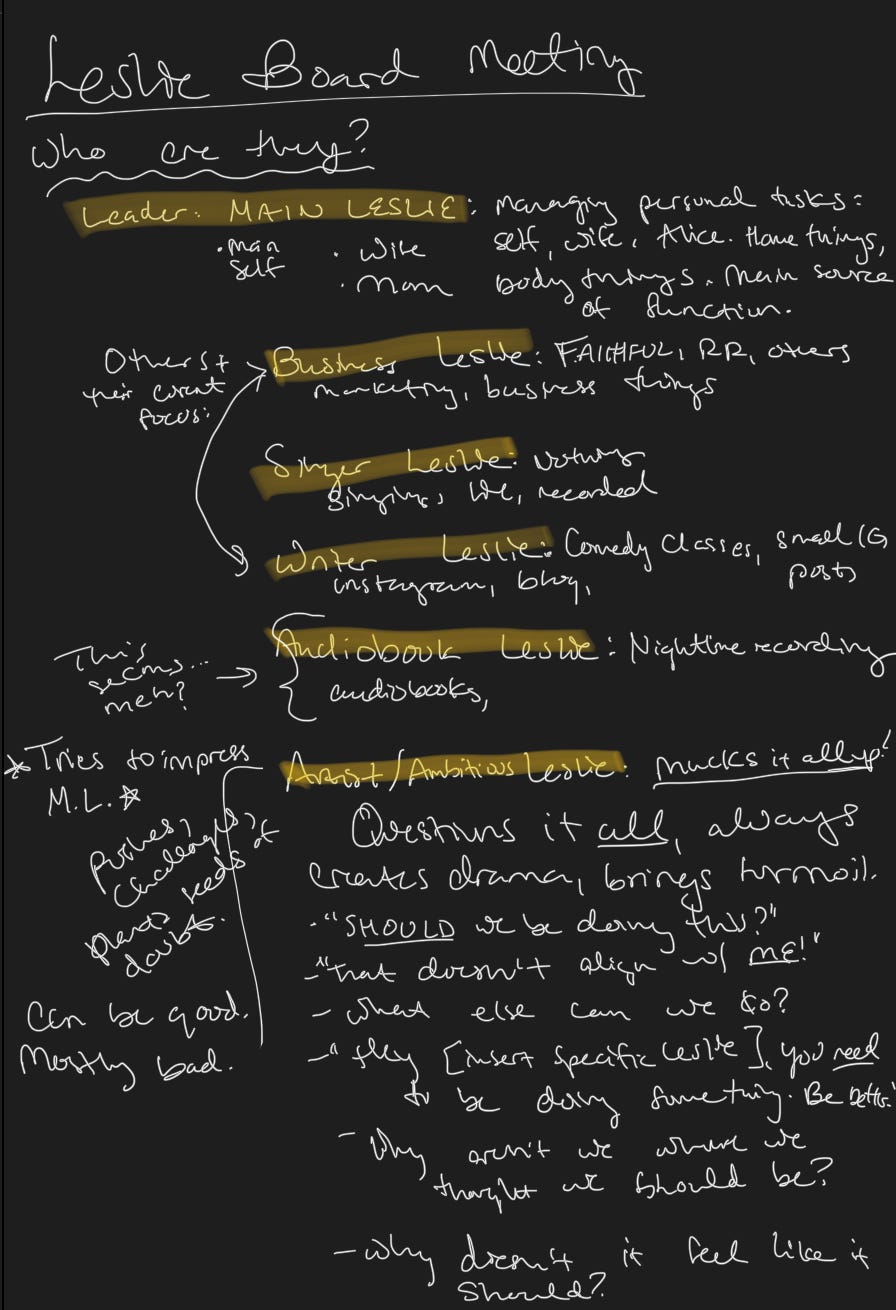 Leslie Board Meeting
Who are they?
Leader: MAIN LESLIE: managing personal tasks:
self, wife, Alice. Home things,
body things. Main source
of function.
• Main
self
• Wife
• Mom
Others +
their current
focus:
Business Leslie: FAITHFUL, RR, others
marketing, business things
Singer Leslie: nothing
singing, live, recorded
Writer Leslie: Comedy Classes, small IG
posts
instagram, blog,
This
seems...
meh?
Audiobook Leslie: Nighttime recording
audiobooks,
Artist/Ambitious Leslie: mucks it all up!
* Tries to impress
M.L. *
pushes,
challenges,
plants seeds of
doubt.
Can be good.
Mostly bad.
Questions it all, always
creates drama, brings turmoil.
- "SHOULD we be doing this?"
- "that doesn't align w/ ME!"
- what else can we do?
- "Hey [insert specific Leslie], you need
to be doing something. Be better."
- Why aren't we where we
thought we should be?
- why doesn't it feel like it
should?